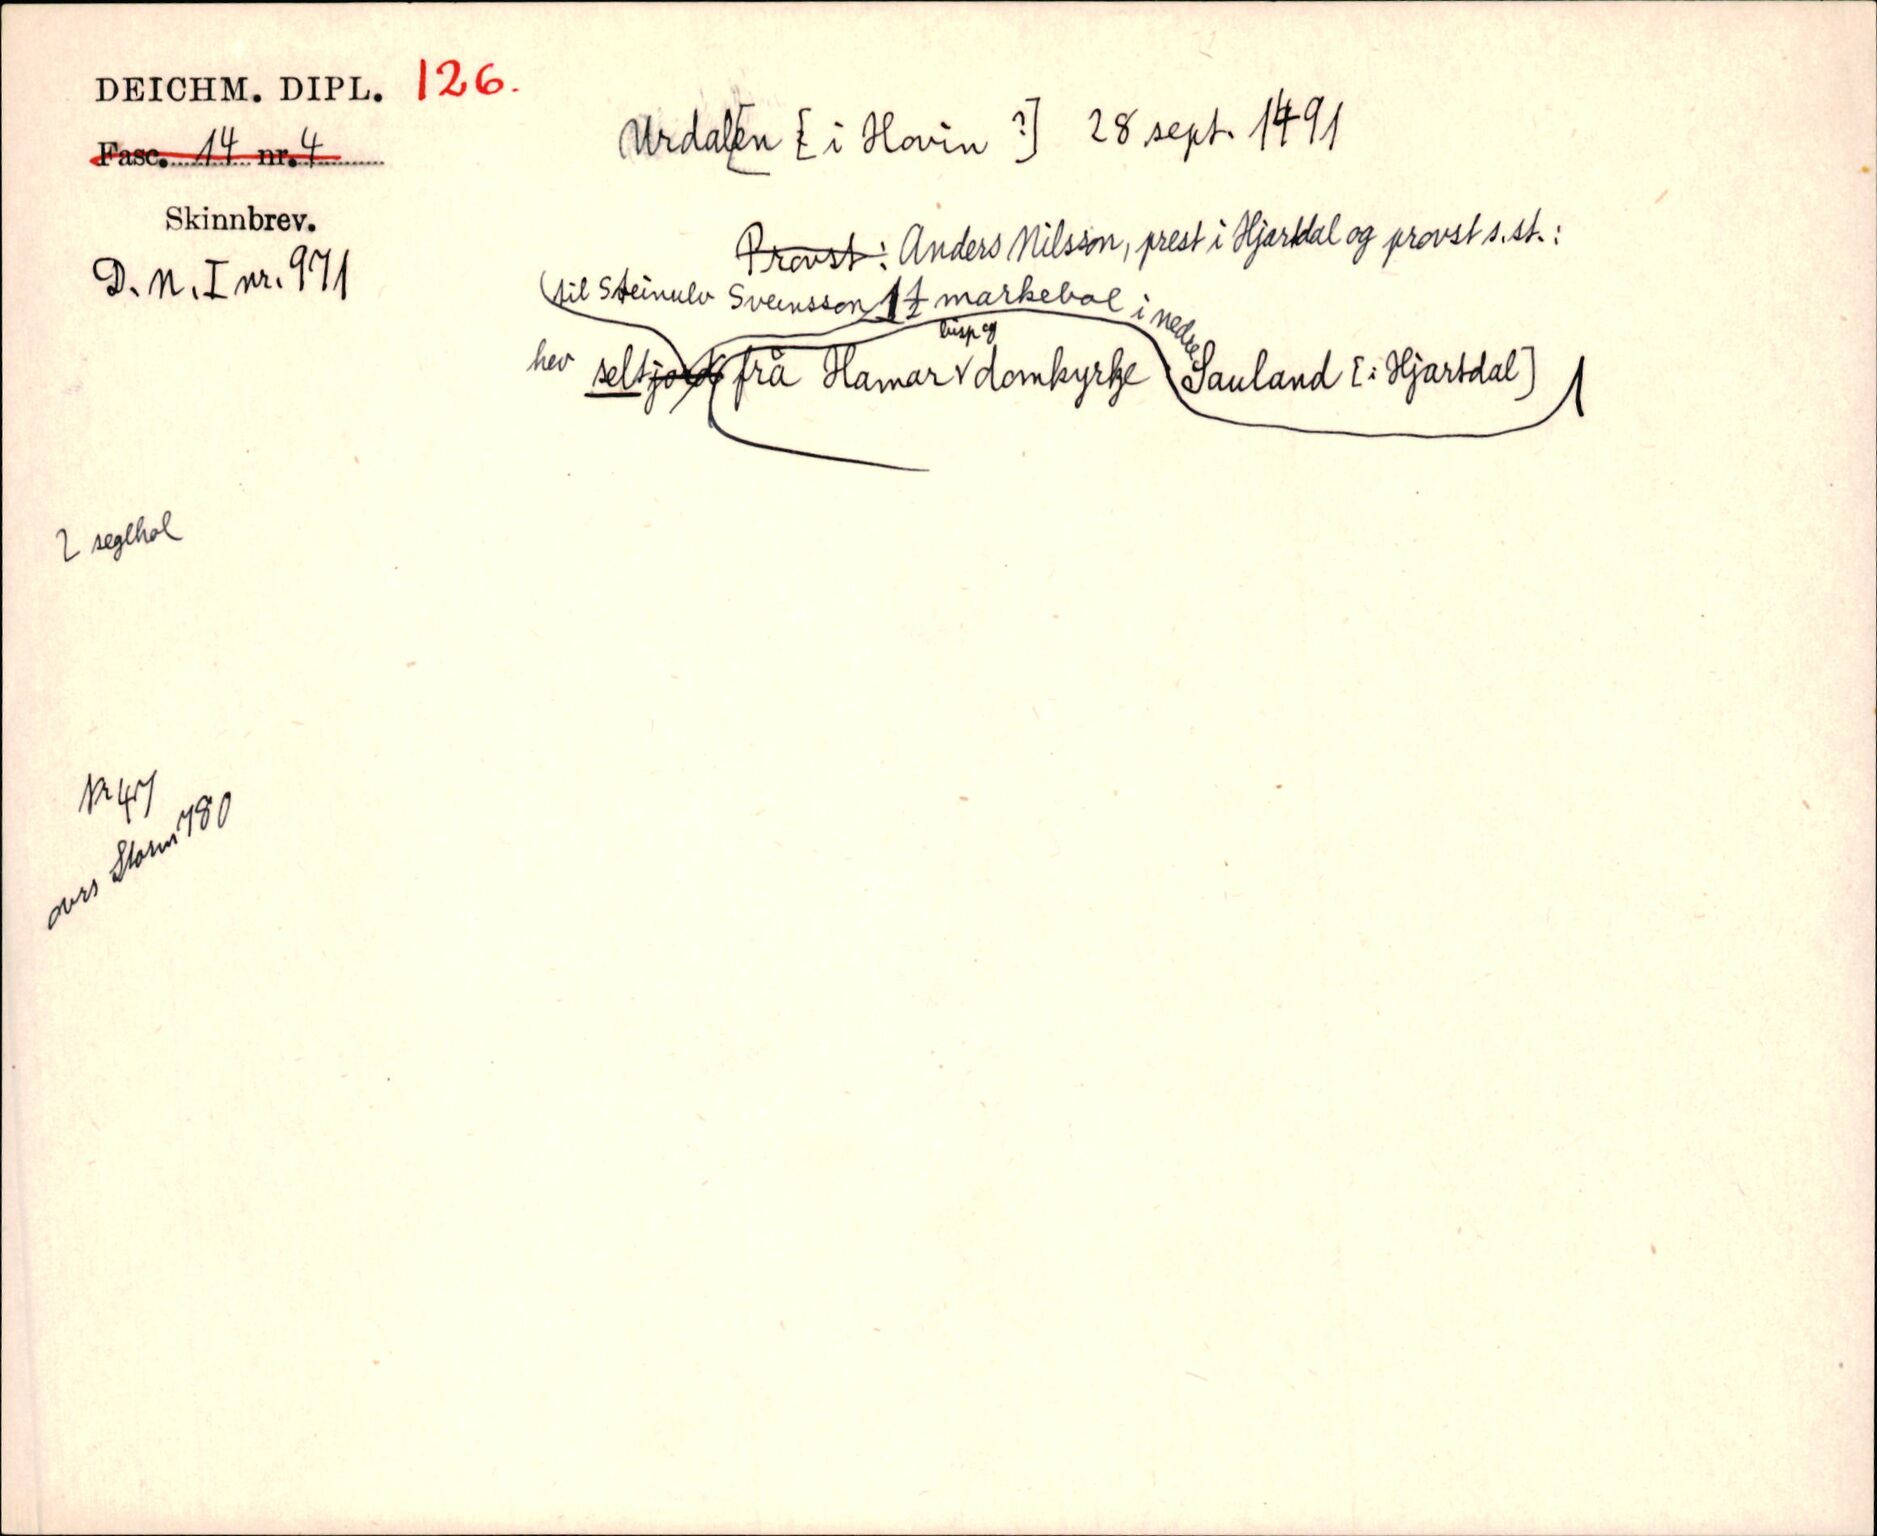 DEICHM. DIPL. 126.
Fasc. 14 nr. 4
Skinnbrev.
D. N. I nr. 971
Urdalen [i Hovin ?] 28 sept. 1491
Provst: Anders Nilsson, prest i Hjartdal og provst s.st.:
til Steinulv Sveinsson 1½ markebol i nedre
bisp og
hev seltjord frå Hamar domkyrkje Sauland [i Hjartdal]
2 seglhol
Nr 47
avs Storm 780